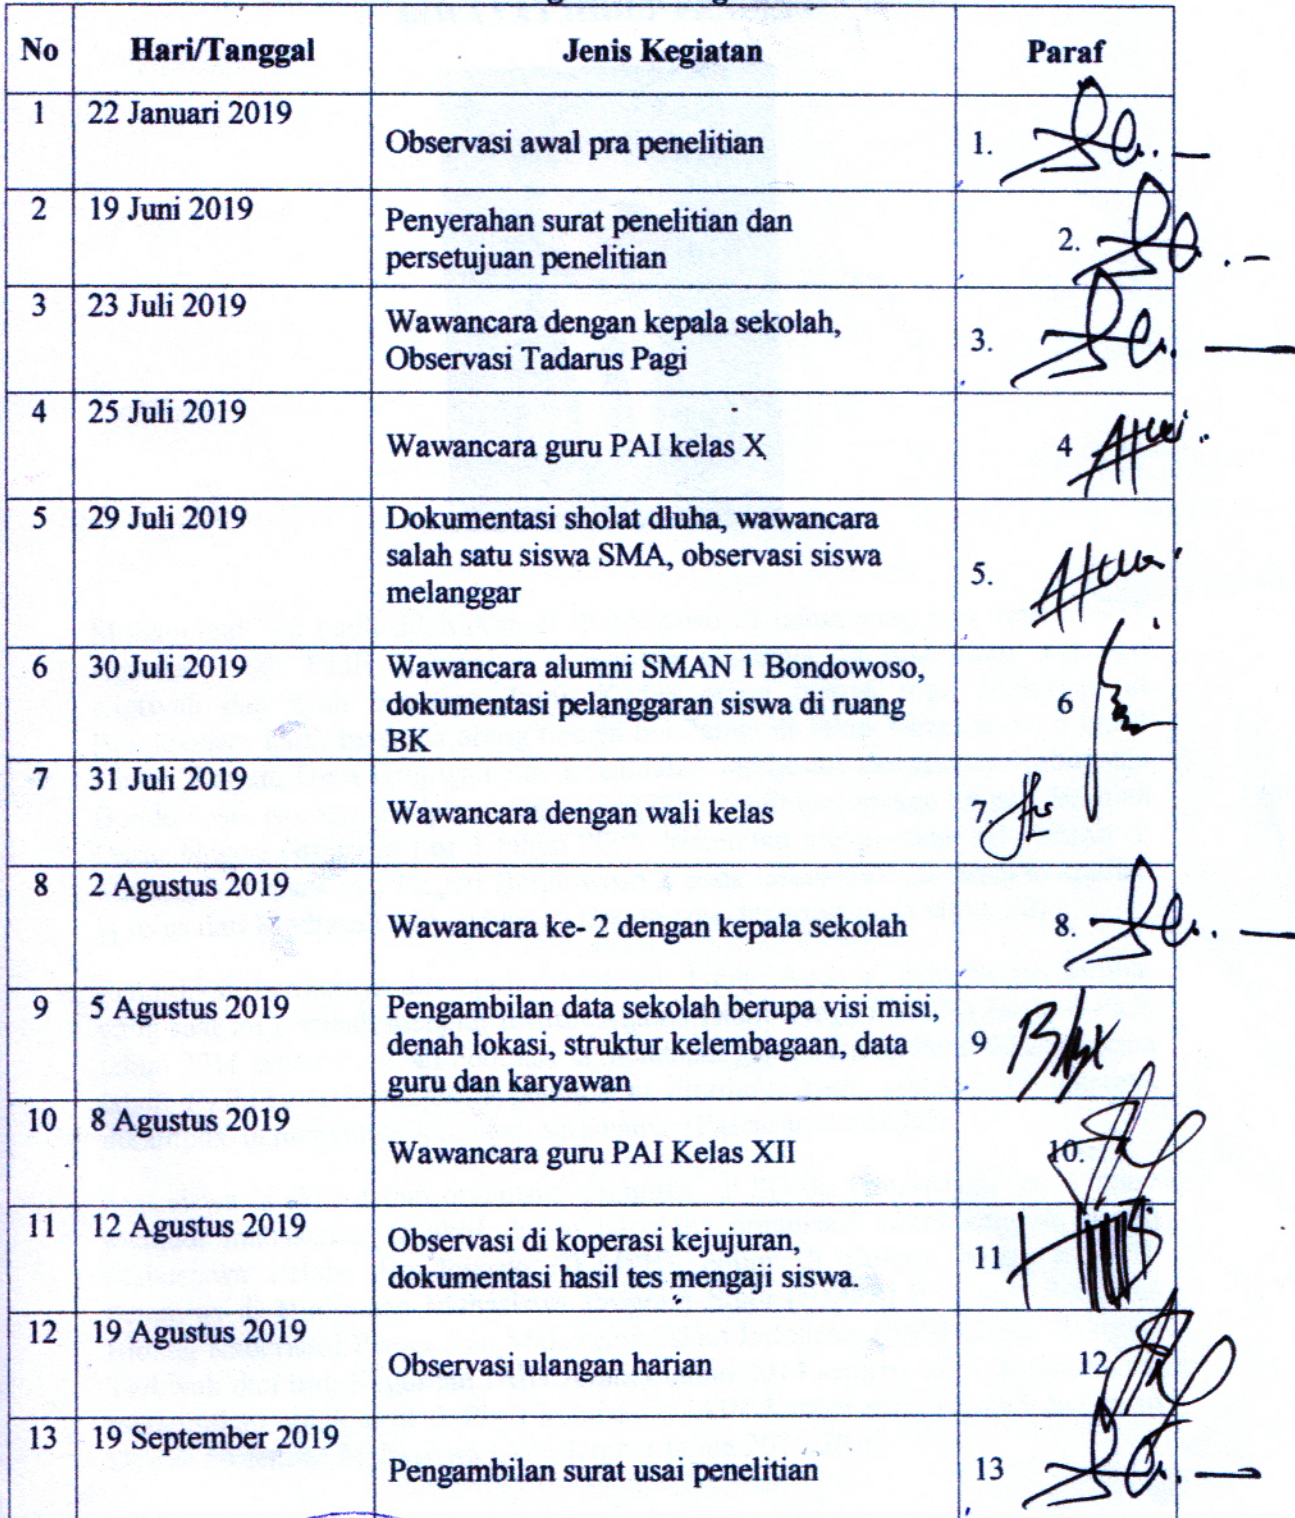 No Hari/Tanggal Jenis Kegiatan Paraf
1 22 Januari 2019
Observasi awal pra penelitian 1.
2 19 Juni 2019
Penyerahan surat penelitian dan
persetujuan penelitian 2.
3 23 Juli 2019
Wawancara dengan kepala sekolah,
Observasi Tadarus Pagi 3.
4 25 Juli 2019
Wawancara guru PAI kelas X 4
5 29 Juli 2019 Dokumentasi sholat dluha, wawancara
salah satu siswa SMA, observasi siswa
melanggar 5.
6 30 Juli 2019 Wawancara alumni SMAN 1 Bondowoso,
dokumentasi pelanggaran siswa di ruang 6
BK
7 31 Juli 2019
Wawancara dengan wali kelas 7.
8 2 Agustus 2019
Wawancara ke- 2 dengan kepala sekolah 8.
9 5 Agustus 2019 Pengambilan data sekolah berupa visi misi,
denah lokasi, struktur kelembagaan, data 9
guru dan karyawan
10 8 Agustus 2019
Wawancara guru PAI Kelas XII 10.
11 12 Agustus 2019
Observasi di koperasi kejujuran, 11
dokumentasi hasil tes mengaji siswa.
12 19 Agustus 2019
Observasi ulangan harian 12
13 19 September 2019
Pengambilan surat usai penelitian 13